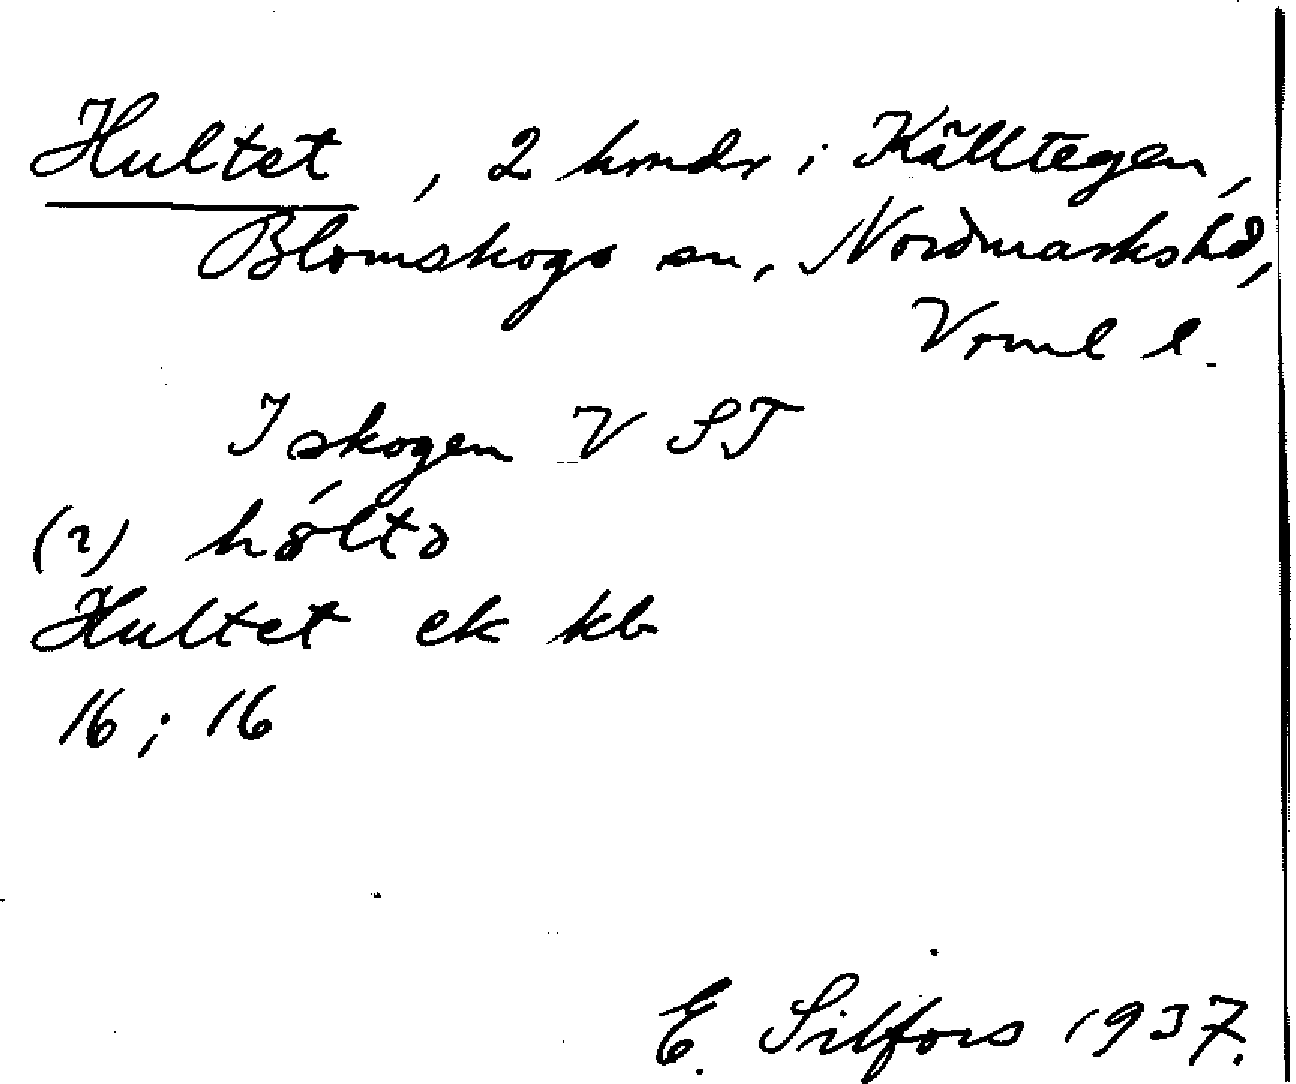 Hultet, 2 hmdr i Källtegen,
Blomskogs sn, Nordmarkshd,
Vrml l.
I skogen V ST
(2)
Hultet ek kb
16; 16
E. Silfors 1937.